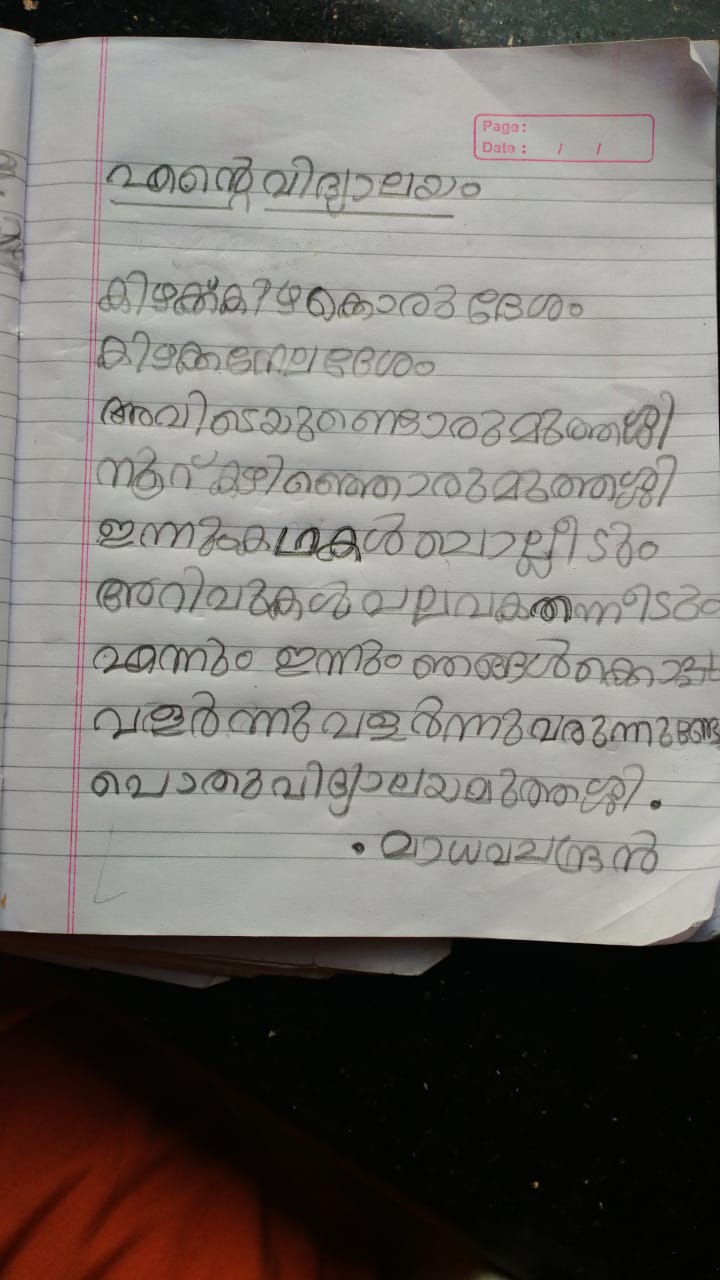 Page :
Date : / /
എന്റെ വിദ്യാലയം
കിഴക്ക്കിഴകൊരു ദേശം
കിഴക്കമ്പലദേശം
അവിടെയുണ്ടൊരുമുത്തശ്ശി
നൂറ് കഴിഞ്ഞൊരുമുത്തശ്ശി
ഇന്നുംകഥകൾ ചൊല്ലീടും
അറിവുകൾ പലവകതന്നീടും
എന്നും ഇന്നും ഞങ്ങൾക്കൊപ്പം
വളർന്നു വളർന്നു വരുന്നുണ്ടേ
പൊതുവിദ്യാലയമുത്തശ്ശി.
• മാധവചന്ദ്രൻ